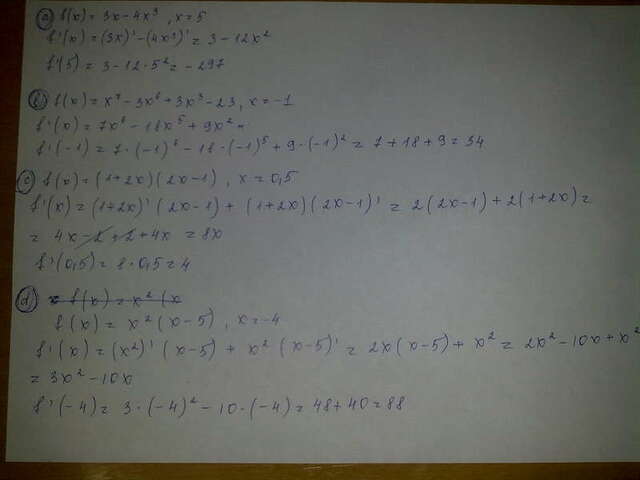 a) f(x) = 3x - 4x³, x = 5
f'(x) = (3x)' - (4x³)' = 3 - 12x²
f'(5) = 3 - 12 · 5² = - 297
b) f(x) = x⁷ - 3x⁶ + 3x³ - 23, x = -1
f'(x) = 7x⁶ - 18x⁵ + 9x² =
f'(-1) = 7 · (-1)⁶ - 18 · (-1)⁵ + 9 · (-1)² = 7 + 18 + 9 = 34
c) f(x) = (1+2x)(2x-1), x = 0,5
f'(x) = (1+2x)'(2x-1) + (1+2x)(2x-1)' = 2(2x-1) + 2(1+2x) =
= 4x - 2 + 2 + 4x = 8x
f'(0,5) = 8 · 0,5 = 4
d) = f(x) = x² (x
f(x) = x² (x-5), x = -4
f'(x) = (x²)' (x-5) + x² (x-5)' = 2x(x-5) + x² = 2x² - 10x + x²
= 3x² - 10x
f'(-4) = 3 · (-4)² - 10 · (-4) = 48 + 40 = 88